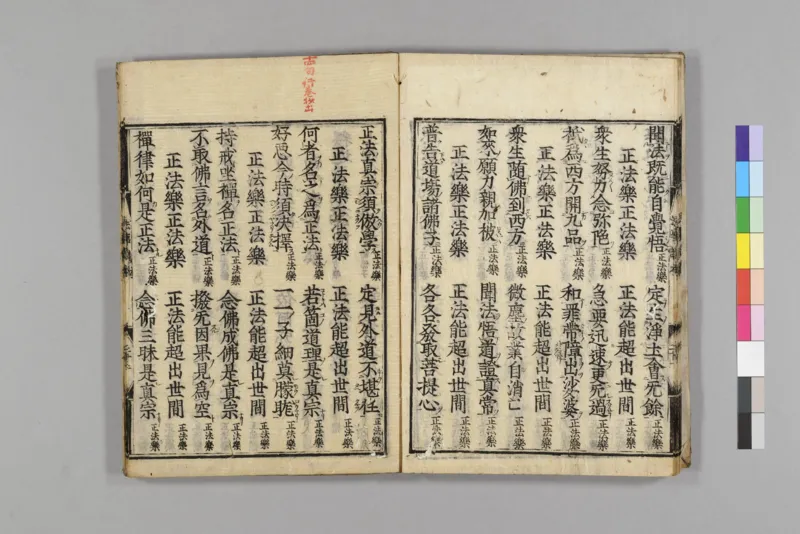 聞法既能自覺悟正法樂 定生淨土會无餘正法樂
正法樂正法樂 正法能超出世間正法樂
衆生努力念弥陁正法樂 急要迅速更无過正法樂
秖為西方開九品正法樂 和罪帶障出沙婆正法樂
正法樂正法樂 正法能超出世間正法樂
衆生随佛到西方正法樂 微塵故業自消亡正法樂
如來願力親加被正法樂 聞法悟道證真常正法樂
正法樂正法樂 正法能超出世間正法樂
普告道場諸佛子正法樂 各各發取菩提心正法樂
正法真宗須倣學正法樂 定見外道不堪任正法樂
正法樂正法樂 正法能超出世間正法樂
何者名之爲正法正法樂 若箇道理是真宗正法樂
好惡今時須決擇正法樂 一一子細莫朦朧正法樂
正法樂正法樂 正法能超出世間正法樂
持戒坐禪名正法正法樂 念佛成佛是真宗正法樂
不取佛言名外道正法樂 撥无因果見爲空正法樂
正法樂正法樂 正法能超出世間正法樂
禪律如何是正法正法樂 念佛三昧是真宗正法樂